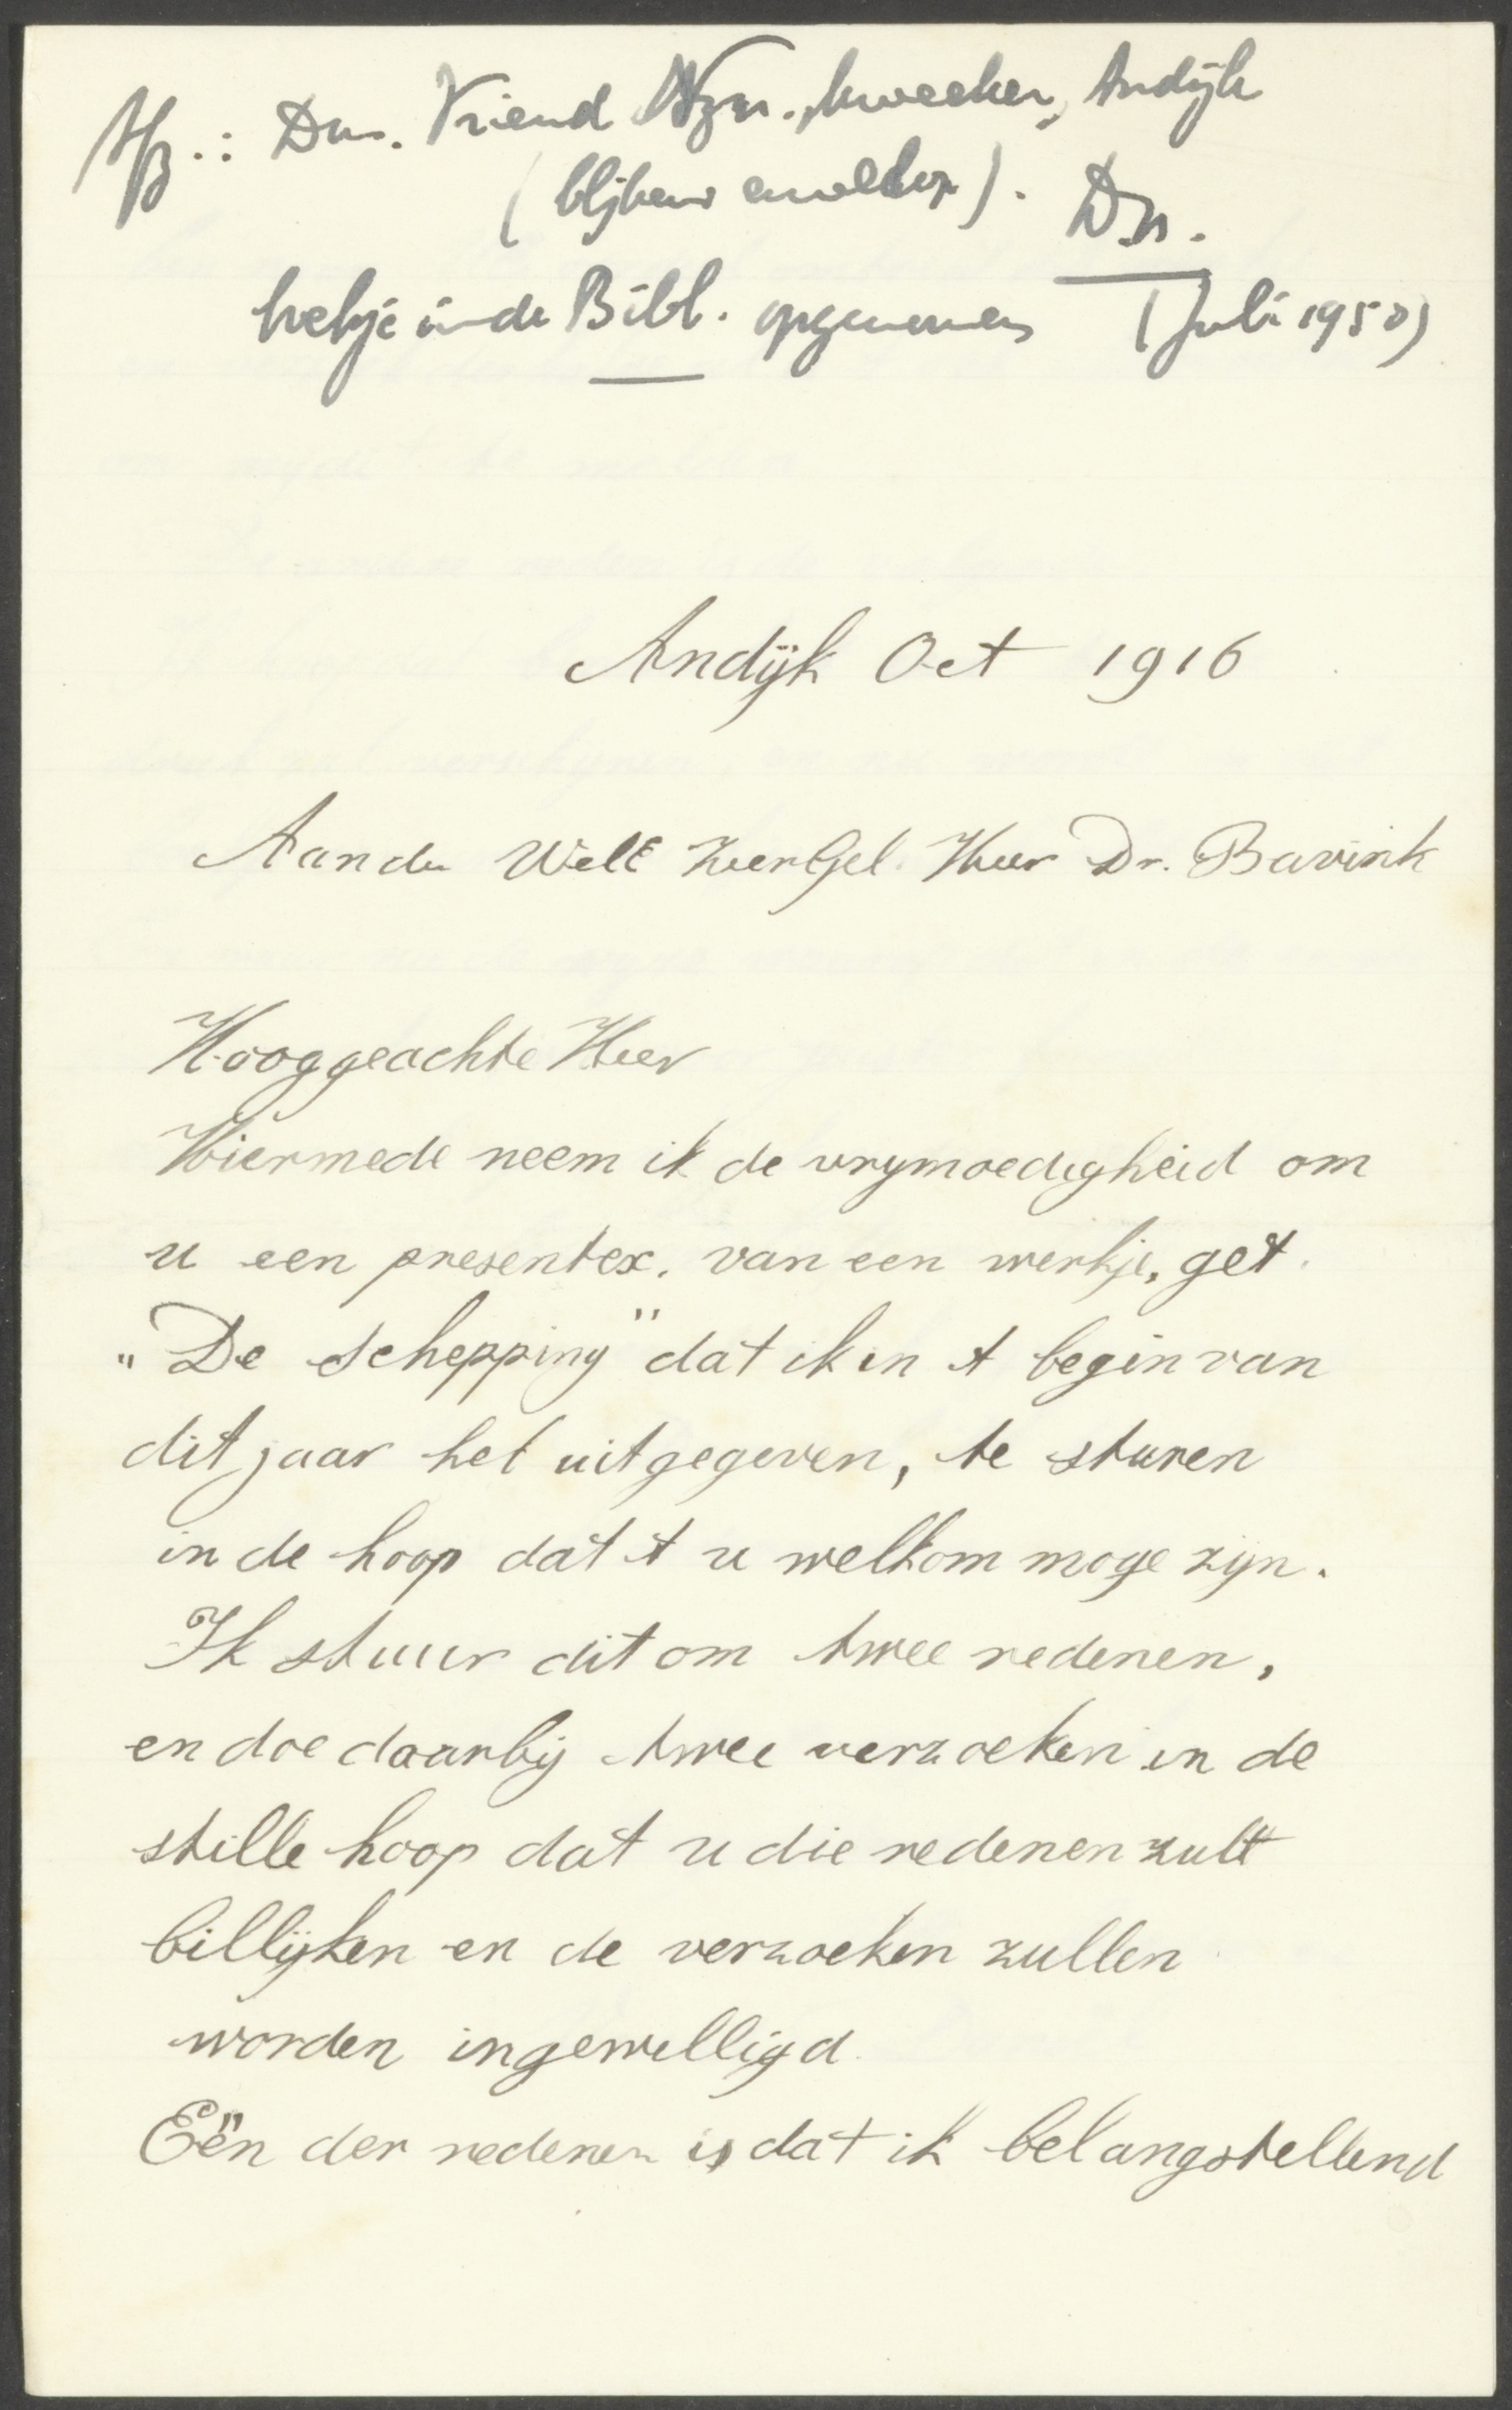 Afz.: Dn. Vriend Nzn., kweeker, Andijk
(blijkens envelop). Dn.
boekje in de Bibl. opgenomen (Juli 1950)
Andijk Oct 1916
Aan de WelE ZeerGel. Heer Dr. Bavink
Hooggeachte Heer
Hiermede neem ik de vrymoedigheid om
u een presentex. van een werkje, get.
„De Schepping" dat ik in 't begin van
dit jaar heb uitgegeven, te sturen
in de hoop dat 't u welkom moge zyn.
Ik stuur dit om twee redenen,
en doe daarbij twee verzoeken in de
stille hoop dat u die redenen zult
billijken en de verzoeken zullen
worden ingewilligd.
Eën der redenen is dat ik belangstellend